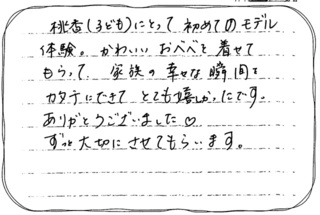 桃杏(子ども)にとって 初めてのモデル
体験。かわいい おべべを 着せて
もらって 家族の 幸せな 瞬間を
カタチにできて とても嬉しかったです。
ありがとうございました♡
ずっと大切にさせてもらいます。